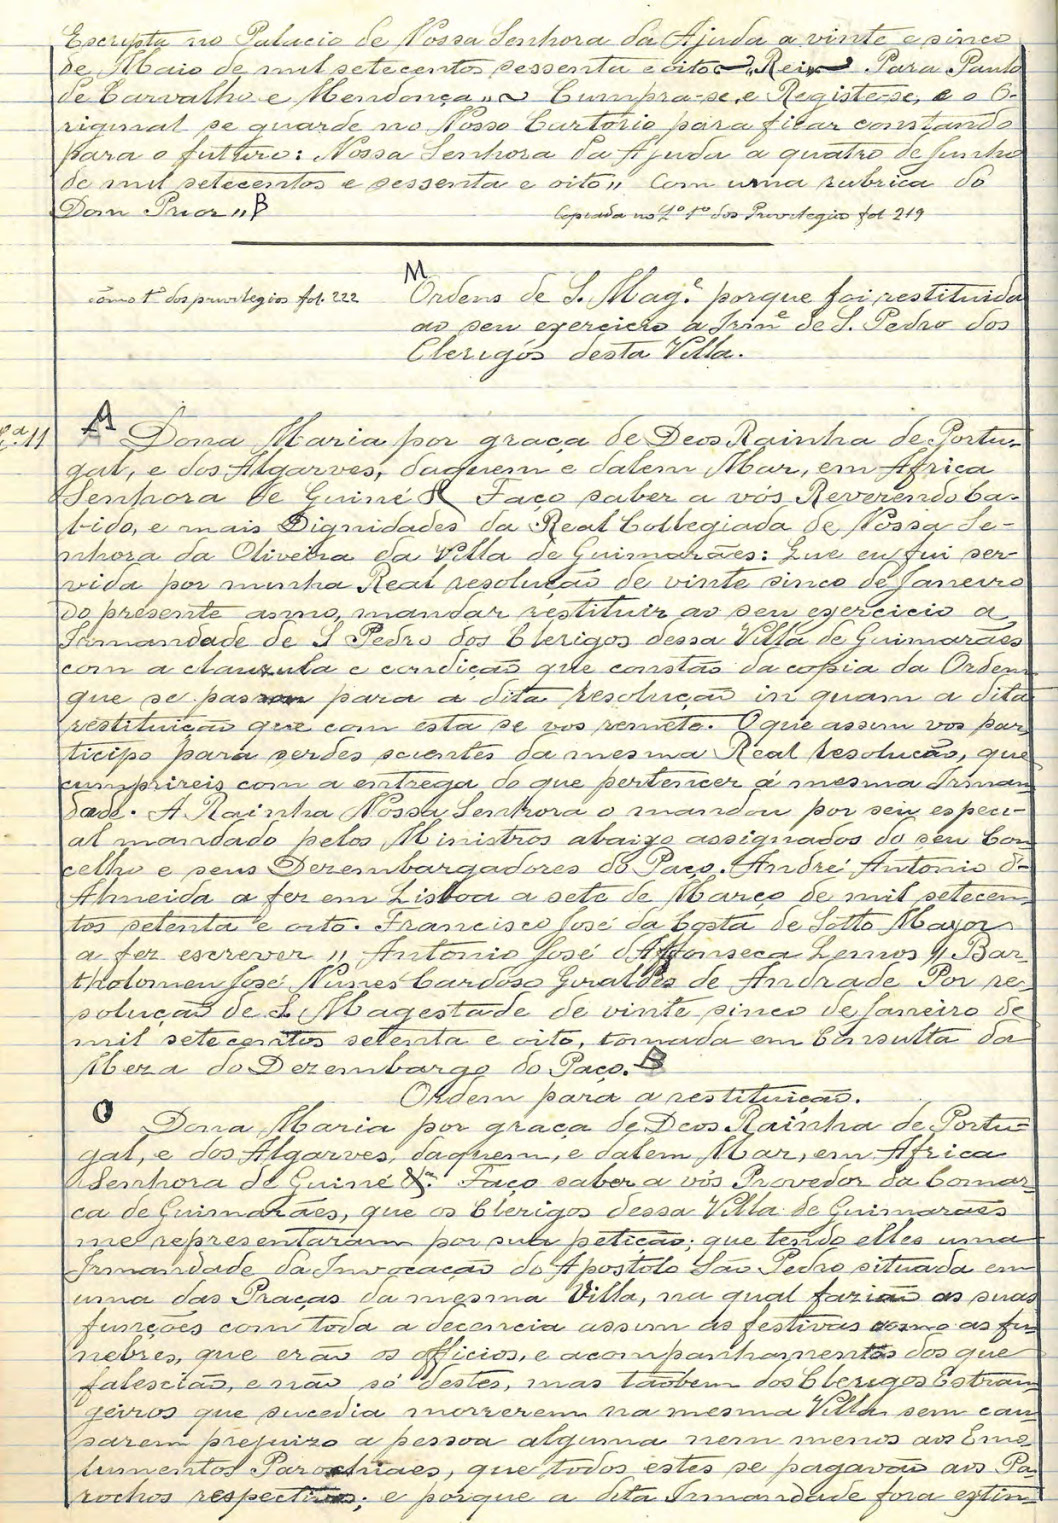 Escripta no Palacio de Nossa Senhora da Ajuda a vinte e sinco
de Maio de mil setecentos sessenta e oito „Rei„ Para Paulo
de Carvalho e Mendonça„ Cumpra-se, e Registe-se, e o O-
riginal se guarde no Nosso Cartorio para ficar constando
para o futuro: Nossa Senhora da Ajuda a quatro de Junho
de mil setecentos e sessenta e oito„ Com uma rubrica do
Dom Prior„ B
Copiada no 2º tº dos Privilegios fol 219
M
como tº dos privilegios fol. 222
Ordens de S. Mag.e porque foi restituida
ao seu exercicio a Irm.e de S. Pedro dos
Clerigos desta Villa.
A
Dona Maria por graça de Deos Rainha de Portu-
gal, e dos Algarves, daquem e dalem Mar, em Africa
Senhora de Guiné & Faço saber a vós Reverendo Ca-
bido, e mais Dignidades da Real Collegiada de Nossa Se-
nhora da Oliveira da Villa de Guimarães: Que eu fui ser-
vida por minha Real resolução de vinte sinco de Janeiro
do presente anno, mandar restituir ao seu exercicio a
Irmandade de S Pedro dos Clerigos dessa Villa de Guimarães
com a clauzula e condição que constão da copia da Ordem
que se passou para a dita resolução in quam a dita
restituição que com esta se vos remete. O que assim vos par
ticipo para serdes scientes da mesma Real resolucão, que
cumprireis com a entrega do que pertencer á mesma Irman
dade. A Rainha Nossa Senhora o mandou por seu especi-
al mandado pelos Ministros abaixo assignados do seu Con
celho e seus Dezembargadores do Paço. André Antonio d-
Almeida a fez em Lisboa a sete de Março de mil setecen-
tos setenta e oito. Francisco José da Costa de Sotto Mayor
a fez escrever „ Antonio José d'Affonseca Lemos „ Bar-
tholomeu José Nunes Cardoso Giraldes de Andrade Por re-
solução de S. Magestade de vinte sinco de Janeiro de
mil setecentos setenta e oito, tomada em Consulta da
Meza do Dezembargo do Paço. B
Ordem para a restituição.
O
Dona Maria por graça de Deos Rainha de Portu-
gal, e dos Algarves, daquem, e dalem Mar, em Africa
Senhora de Guiné &ª. Faço saber a vós Provedor da Comar-
ca de Guimarães, que os Clerigos dessa Villa de Guimarães
me representaram por sua petição; que tendo elles uma
Irmandade da Invocação do Apostolo São Pedro situada em
uma das Praças da mesma Villa, na qual fazião as suas
funções com toda a decencia assim as festivas como as fu-
nebres, que erão os officios, e acompanhamentos dos que
falescião, e não só destes, mas tãobem dos Clerigos Estran-
geiros que sucedia morrerem na mesma Villa sem cau-
sarem prejuizo a pessoa alguma nem menos aos Emo-
lumentos Parochiaes, que todos estes se pagavão aos Pa-
rochos respectivos; e porque a dita Irmandade fora extin-